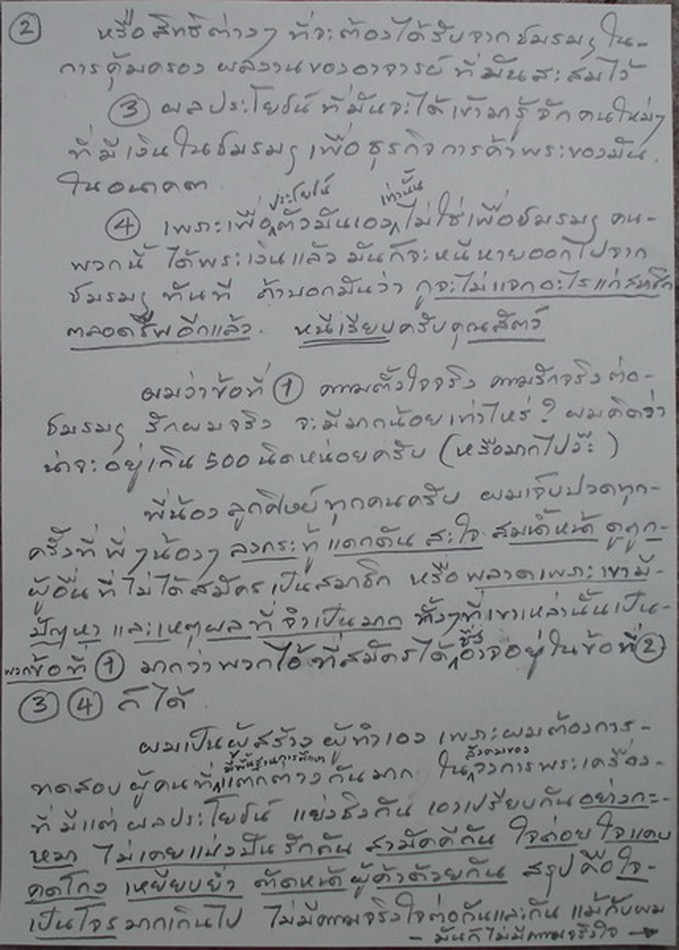 ②
หรือสิทธิต่างๆ ที่จะต้องได้รับจากชมรมฯ ใน-
การคุ้มครอง ผลงานของอาจารย์ ที่มันสะสมไว้
③ ผลประโยชน์ ที่มันจะได้เข้ามารู้จักคนใหม่ๆ
ที่มีเงินในชมรมฯ เพื่อธุรกิจการค้าพระของมัน.
ในอนาคต
④ เพราะเพื่อประโยชน์ตัวมันเองเท่านั้นไม่ใช่เพื่อชมรมฯ คน-
พวกนี้ ได้พระเงินแล้ว มันก็จะหนีหายออกไปจาก
ชมรมฯ ทันที ถ้าบอกมันว่า กูจะไม่แจกอะไรแก่สมาชิก
ตลอดชีพอีกแล้ว. หนีเรียบครับคุณสัตว์
ผมว่าข้อที่ ① ความตั้งใจจริง ความรักจริงต่อ-
ชมรมฯ รักผมจริง จะมีมากน้อยเท่าไหร่? ผมคิดว่า
น่าจะอยู่เกิน 500 นิดหน่อยครับ (หรือมากไปว๊ะ)
พี่น้อง ลูกศิษย์ทุกคนครับ ผมเจ็บปวดทุก-
ครั้งที่พี่ๆน้องๆ ลงกระทู้ แดกดัน สะใจ สมน้ำหน้า ดูถูก-
ผู้อื่นที่ไม่ได้สมัครเป็นสมาชิก หรือพลาดเพราะเขามี-
ปัญหา และเหตุผลที่จำเป็นมาก ทั้งๆที่เขาเหล่านั้นเป็น-
พวกข้อที่ ① มากกว่าพวกไอ้ที่สมัครได้ซึ่งอาจอยู่ในข้อที่ ②
③ ④ ก็ได้
ผมเป็นผู้สร้าง ผู้ทำเอง เพราะผมต้องการ-
ทดสอบผู้คนที่มีพื้นฐานการศึกษาแตกต่างกันมาก ในสังคมของวงการพระเครื่อง-
ที่มีแต่ ผลประโยชน์ แย่งชิงกัน เอาเปรียบกันอย่างกะ-
หมา ไม่เคยแบ่งปันรักกัน สามัคคีกัน ใจต่อย ใจแคบ
คดโกง เหยียบย่ำ ตัดหน้าผู้ค้าด้วยกัน สรุปคือใจ-
เป็นโจรมากเกินไป ไม่มีความจริงใจต่อกันและกัน แม้กับผม
- มันก็ไม่มีความจริงใจ →